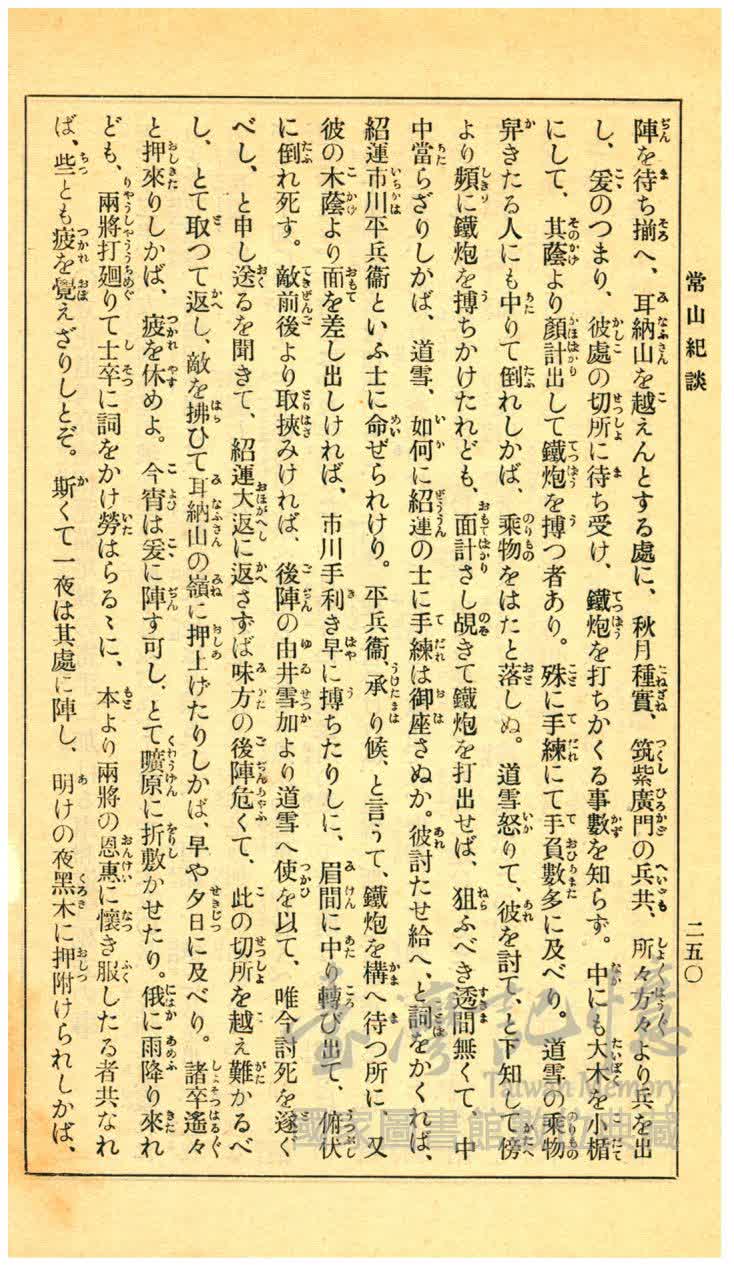 常山紀談
二五〇
陣を待ち揃へ、耳納山を越えんとする處に、秋月種實、筑紫廣門の兵共、所々方々より兵を出
し、爰のつまり、彼處の切所に待ち受け、鐵炮を打ちかくる事數を知らず。中にも大木を小楯
にして、其蔭より顔計出して鐵炮を搏つ者あり。殊に手練にて手負數多に及べり。道雪の乘物
舁きたる人にも中りて倒れしかば、乘物をはたと落しぬ。道雪怒りて、彼を討て、と下知して傍
より頻に鐵炮を搏ちかけたれども、面計さし覘きて鐵炮を打出せば、狙ふべき透間無くて、中
中當らざりしかば、道雪、如何に紹運の士に手練は御座さぬか。彼討たせ給へ、と詞をかくれば、
紹運市川平兵衞といふ士に命ぜられけり。平兵衞、承り候、と言うて、鐵炮を構へ待つ所に、又
彼の木蔭より面を差し出しければ、市川手利き早に搏ちたりしに、眉間に中り轉び出て、俯伏
に倒れ死す。敵前後より取挾みければ、後陣の由井雪加より道雪へ使を以て、唯今討死を遂ぐ
べし、と申し送るを聞きて、紹運大返に返さずば味方の後陣危くて、此の切所を越え難かるべ
し、とて取つて返し、敵を拂ひて耳納山の嶺に押上げたりしかば、早や夕日に及べり。諸卒遙々
と押來りしかば、疲を休めよ。今宵は爰に陣す可し、とて曠原に折敷かせたり。俄に雨降り來れ
ども、兩將打廻りて士卒に詞をかけ勞はらるゝに、本より兩將の恩惠に懷き服したる者共なれ
ば、些とも疲を覺えざりしとぞ。斯くて一夜は其處に陣し、明けの夜黑木に押附けられしかば、
臺灣記憶
Taiwan Memory
國家圖書館數位典藏